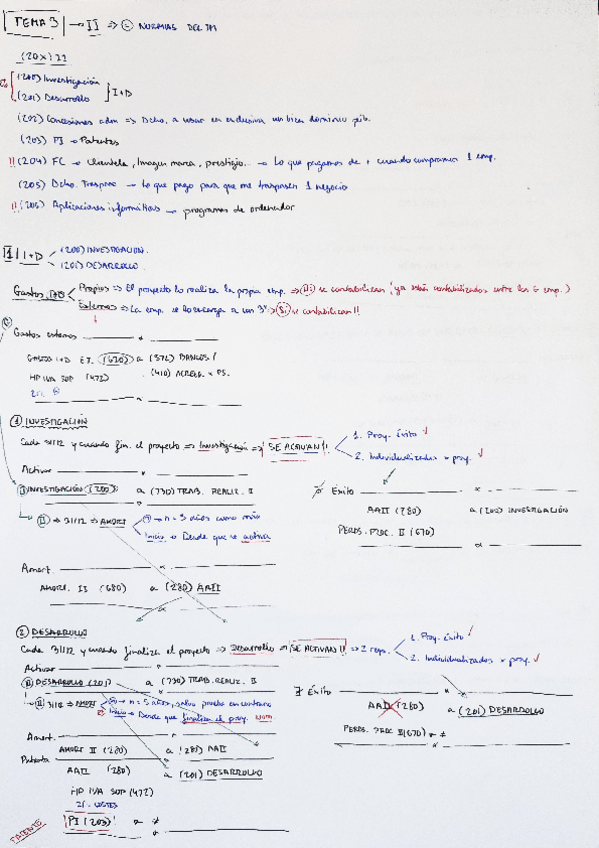 TEMA 3 → II ⇒ ② NORMAS DEL IM
(20X) II
(200) Investigación
(201) Desarrollo } I+D
(202) Concesiones adm ⇒ Dcho. a usar en exclusiva un bien dominio púb.
(203) PI → Patentes
!! (204) FC → clientela, Imagen marca, prestigio... → Lo que pagamos de + cuando compramos 1 emp.
(205) Dcho. Traspaso → Lo que pago para que me traspasen 1 negocio
!! (206) Aplicaciones informáticas → programas de ordenador
1 I+D (200) INVESTIGACIÓN.
(201) DESARROLLO.
Gastos Propios ⇒ El proyecto lo realiza la propia emp. ⇒ se contabilizan (ya están contabilizados entre los 6 emp.)
Externos ⇒ La emp. se lo encarga a un 3º ⇒ Sí se contabilizan!!
Gastos externos a
GASTOS I+D EJ. (620) a (572) BANCOS /
HP IVA SOP (472) (410) ACREED. x PS.
21%
a
① INVESTIGACIÓN
Cada 31/12 y cuando fin. el proyecto ⇒ Investigación ⇒ SE ACTIVAN!! 1. Proy. éxito ✓
2. Individualizados x proy. ✓
Activar
INVESTIGACIÓN (200) a (730) TRAB. REALIZ. II
Éxito a
AAII (280) a (200) INVESTIGACIÓN
PERDS. PROC. II (670)
a
31/12 ⇒ AMORT n = 5 años como máx
Inicio → Desde que se activa
Amort. a
AMORT. II (680) a (280) AAII
② DESARROLLO
Cada 31/12 y cuando finaliza el proyecto ⇒ Desarrollo ⇒ SE ACTIVAN!! ⇒ 2 reqs. 1. Proy. éxito ✓
2. Individualizados x proy. ✓
Activar a
DESARROLLO (201) a (730) TRAB. REALIZ. II
31/12 ⇒ AMORT n = 5 años, salvo prueba en contrario
Inicio → Desde que finaliza el proy.
∄ Éxito a
AAII (280) a (201) DESARROLLO
PERDS. PROC II (670) → ≠
a
Amort. a
AMORT II (280) a (280) AAII
Patenta a
AAII (280) a (201) DESARROLLO
HP IVA SOP (472)
21% COSTES
PI (203) a ≠
PATENTE
a